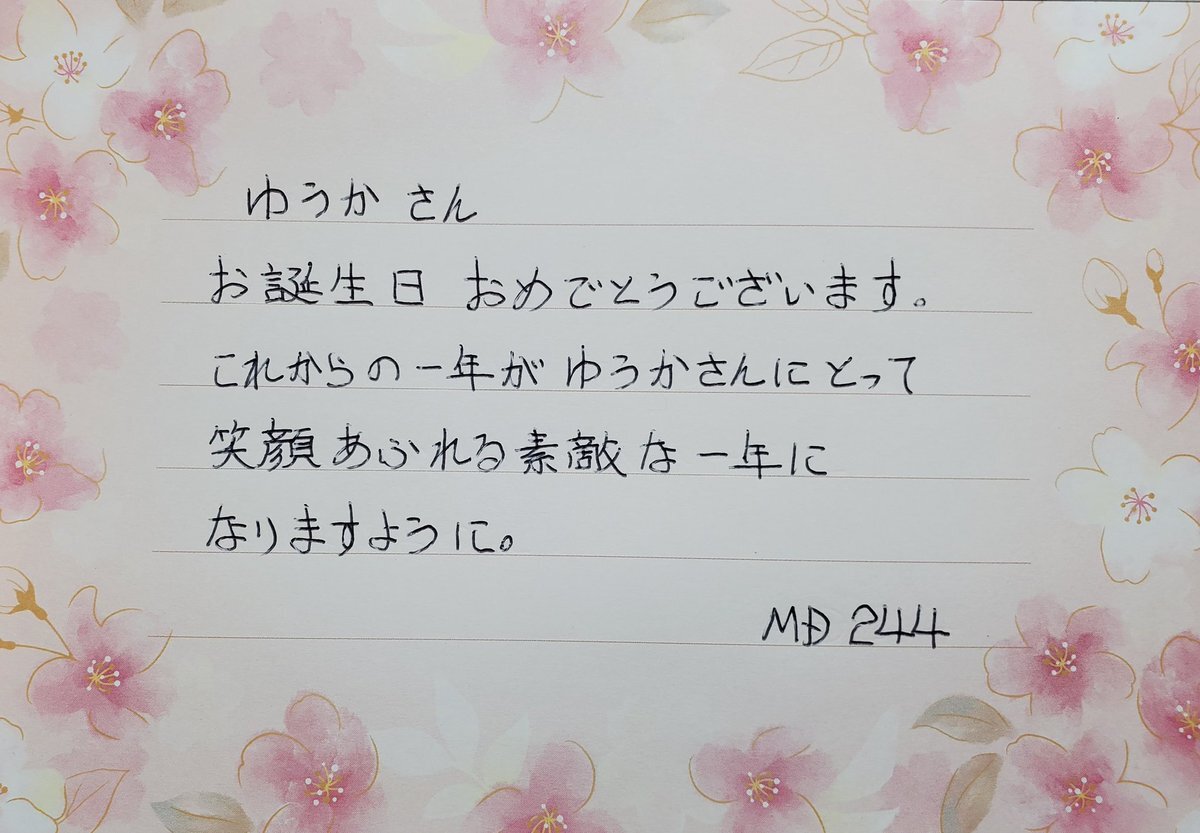 ゆうか さん
お誕生日 おめでとうございます。
これからの一年が ゆうかさんにとって
笑顔あふれる素敵な一年に
なりますように。
MD 244